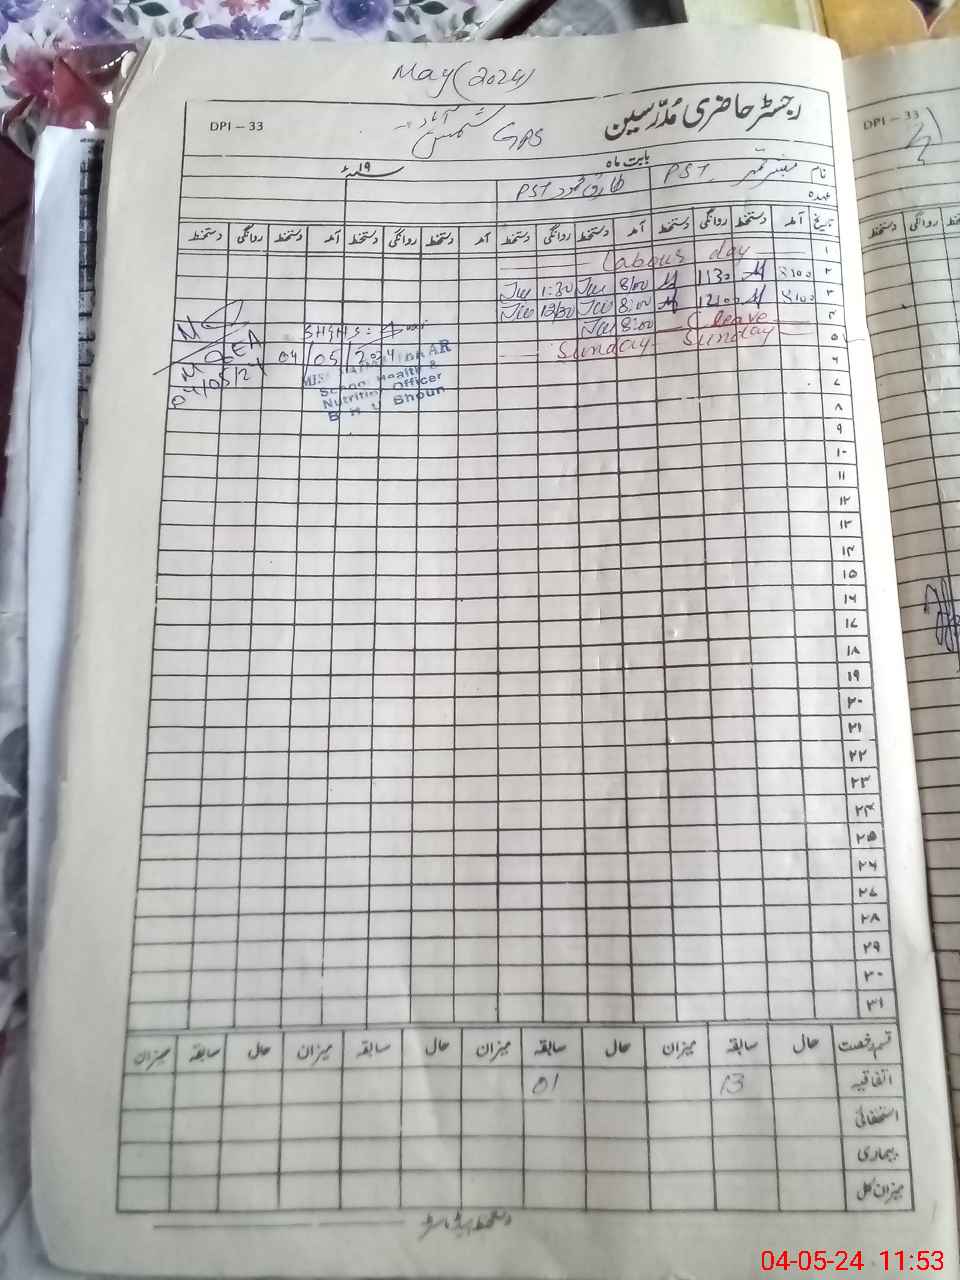 May (2024)
DPI – 33
رجسٹر حاضری مُدرّسین
GPS شمس آباد
DPI – 33
بابت ماہ ۱۹
نام PST طارق محمود PST
عہدہ
تاریخ آمد دستخط روانگی دستخط آمد دستخط روانگی دستخط آمد دستخط روانگی دستخط آمد دستخط روانگی دستخط
دستخط روانگی دستخط
۱ Labour day
۲ 8:00 1:30 8:00 1:30
۳ 8:00 12:00 8:00 12:00
۴ C leave 8:00
۵ Sunday Sunday
SH&NS:
04/05/2024
MEA
04/05/24
School Health &
Nutrition Officer
B H U Bhoun
۶
۷
۸
۹
۱۰
۱۱
۱۲
۱۳
۱۴
۱۵
۱۶
۱۷
۱۸
۱۹
۲۰
۲۱
۲۲
۲۳
۲۴
۲۵
۲۶
۲۷
۲۸
۲۹
۳۰
۳۱
قسم رخصت حال سابقہ میزان حال سابقہ میزان حال سابقہ میزان حال سابقہ میزان
اتفاقیہ 13 01
استحقاقی
بیماری
میزان کل
دستخط ہیڈ ماسٹر
04-05-24 11:53